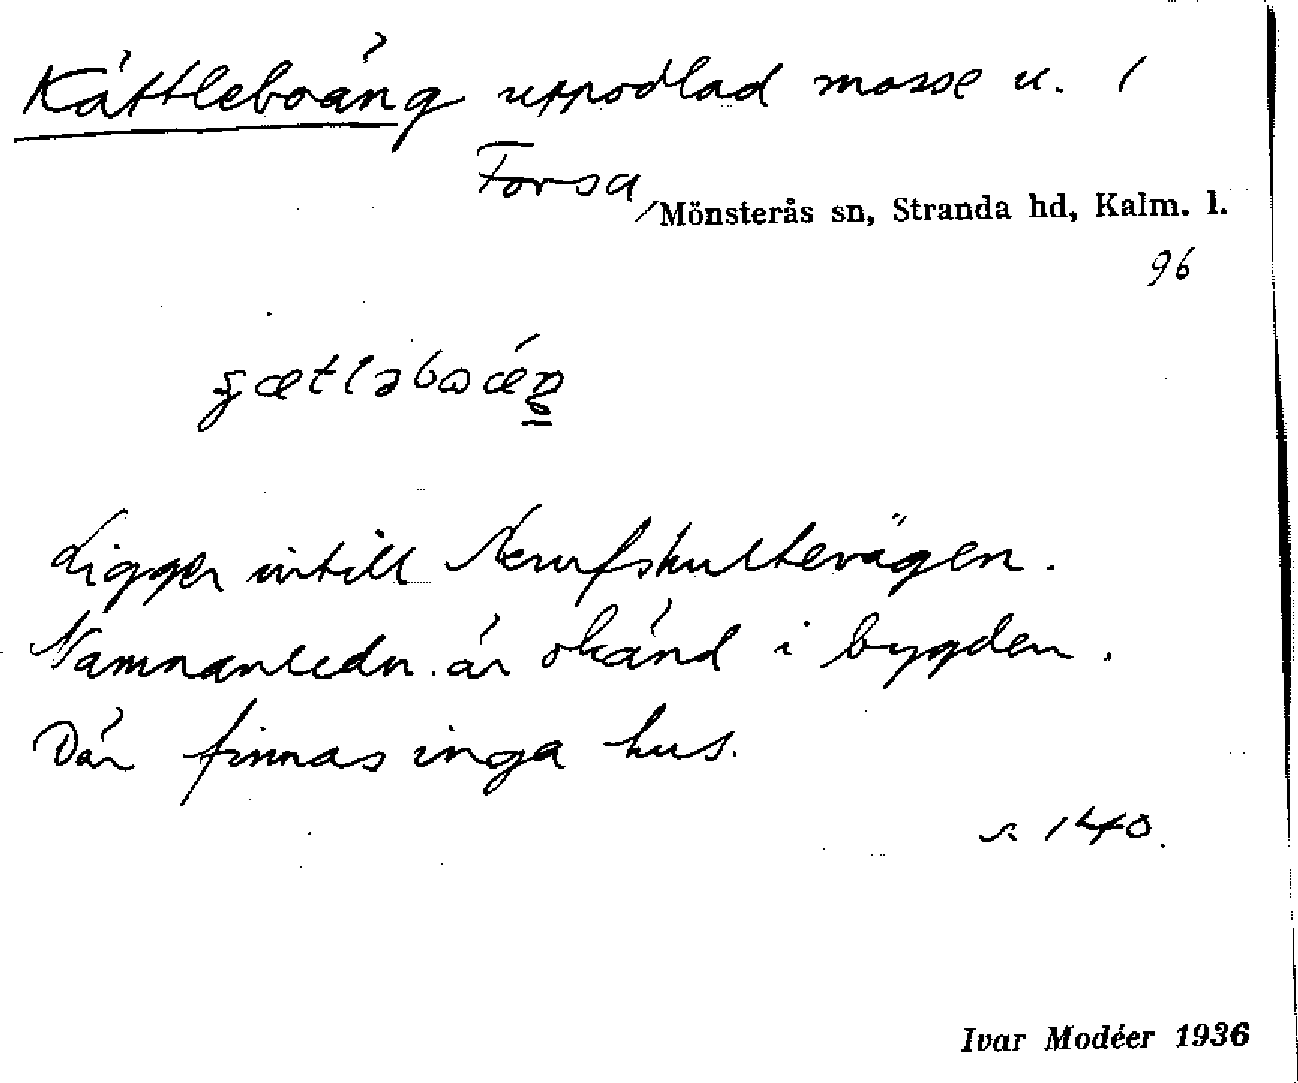 Kättleboäng uppodlad mosse u. /
Forsa
/Mönsterås sn, Stranda hd, Kalm. l.
96
Ligger intill Nerufskultevägen.
Namnanledn. är okänd i bygden.
Där finnas inga hus.
s. 140.
Ivar Modéer 1936